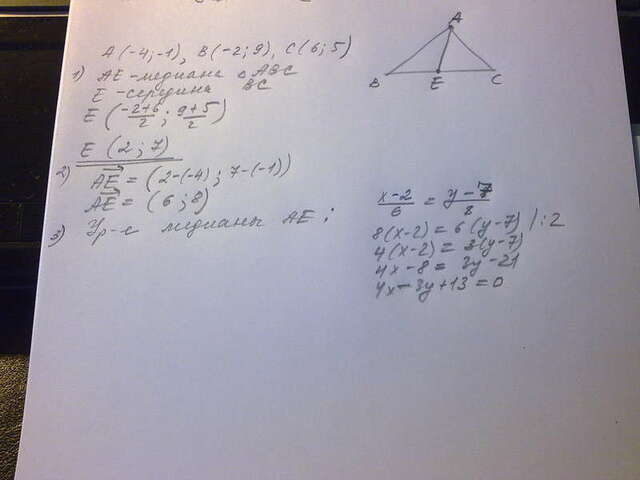 A(-4;-1), B(-2;9), C(6;5)
1) AE - медиана △ABC
E - середина BC
E (-2+6/2 ; 9+5/2)
E (2; 7)
2) AE = (2-(-4) ; 7-(-1))
AE = (6 ; 8)
3) Ур-е медианы AE:
x-2/6 = y-7/8
8(x-2) = 6(y-7) /:2
4(x-2) = 3(y-7)
4x-8 = 3y-21
4x-3y+13=0
A
B
E
C